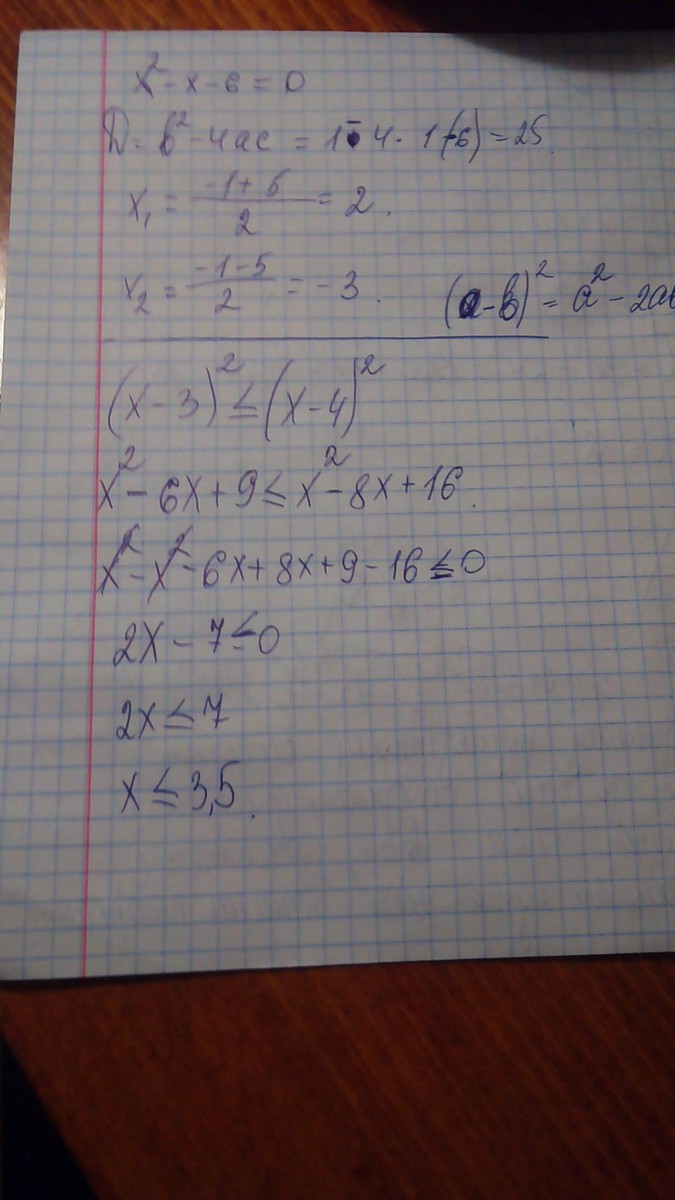 x² - x - 6 = 0
D = b² - 4ac = 1 - 4 · 1(-6) = 25
x₁ = (-1+5)/2 = 2.
x₂ = (-1-5)/2 = -3.
(a-b)² = a² - 2ab
(x-3)² ≤ (x-4)²
x² - 6x + 9 ≤ x² - 8x + 16.
x² - x² - 6x + 8x + 9 - 16 ≤ 0
2x - 7 ≤ 0
2x ≤ 7
x ≤ 3,5.